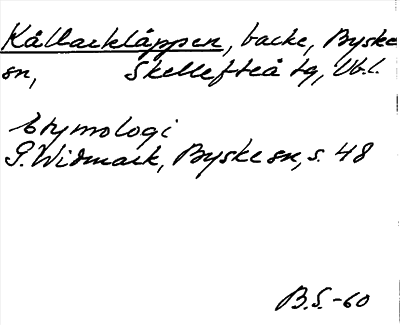 Kållarkläppen, backe, Byske
sn, Skellefteå tg, Vb.l.
Etymologi
P. Widmark, Byske sn, s. 48
B.S.-60